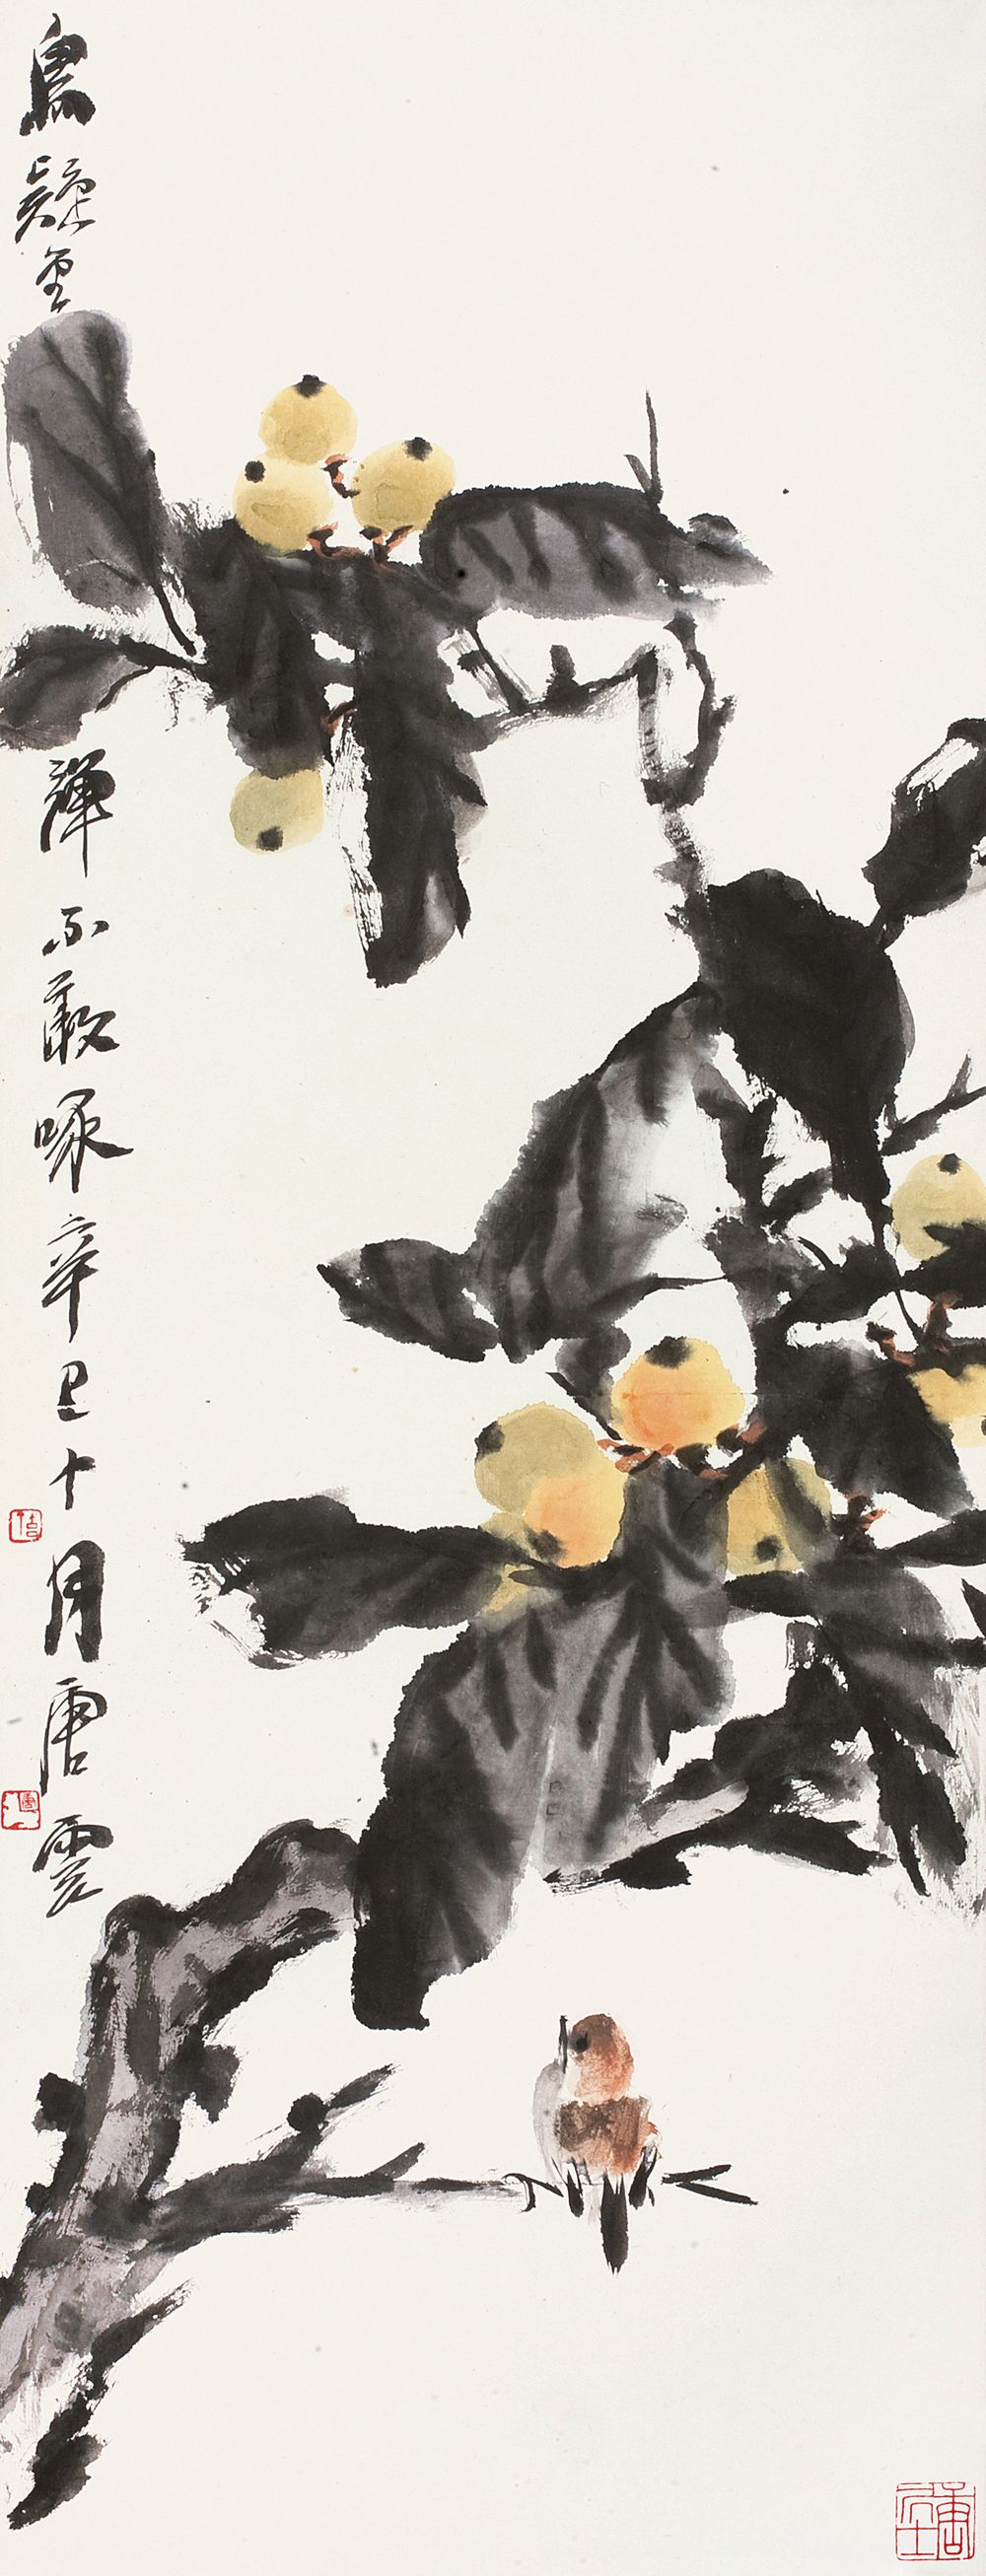 鳥疑金彈不敢啄辛巳十月唐雲